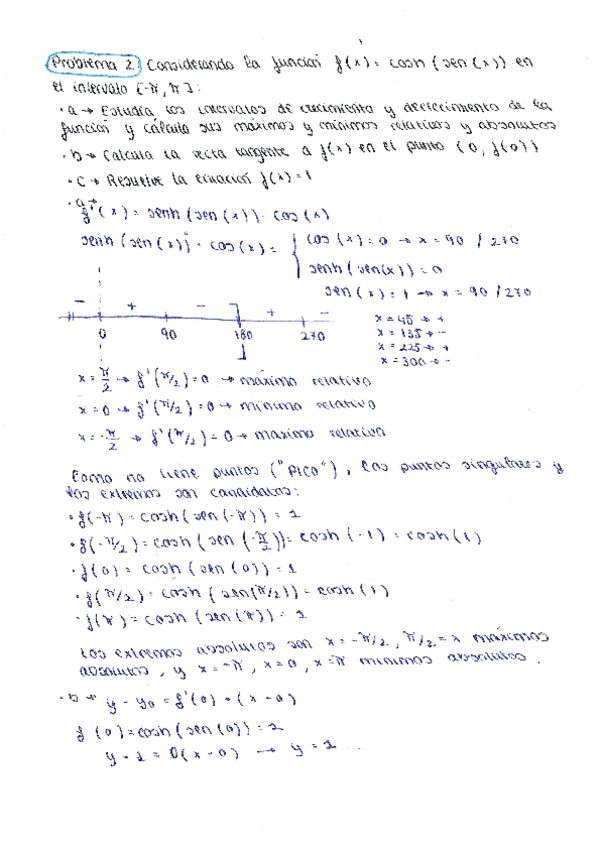 Problema 2. Considerando la función f(x) = cosh (sen(x)) en
el intervalo [-π, π]:
· a → Estudia los intervalos de crecimiento y decrecimiento de la
función y cálcula sus máximos y mínimos relativos y absolutos
· b → Calcula la recta tangente a f(x) en el punto (0, f(0))
· c → Resuelve la ecuación f(x) = 1
· a →
f'(x) = senh (sen(x)) · cos(x)
senh (sen(x)) · cos(x) = { cos(x) = 0 → x = 90 / 270
senh (sen(x)) = 0
sen(x) = 1 → x = 90 / 270
- + - + -
0 90 180 270
x = 45 → +
x = 135 → -
x = 225 → +
x = 300 → -
x = π/2 → f'(π/2) = 0 → máximo relativo
x = 0 → f'(π/2) = 0 → mínimo relativo
x = -π/2 → f'(π/2) = 0 → maximo relativo
Como no tiene puntos ("pico"), los puntos singulares y
los extremos son candidatos:
· f(-π) = cosh (sen(-π)) = 1
· f(-π/2) = cosh (sen(-π/2)) = cosh (-1) = cosh(1)
· f(0) = cosh (sen(0)) = 1
· f(π/2) = cosh (sen(π/2)) = cosh (1)
· f(π) = cosh (sen(π)) = 1
Los extremos absolutos son x = -π/2, π/2 = x máximos
absolutos, y x = -π, x = 0, x = π mínimos absolutos.
· b → y - y0 = f'(0) · (x - 0)
f(0) = cosh (sen(0)) = 1
y - 1 = 0(x - 0) → y = 1